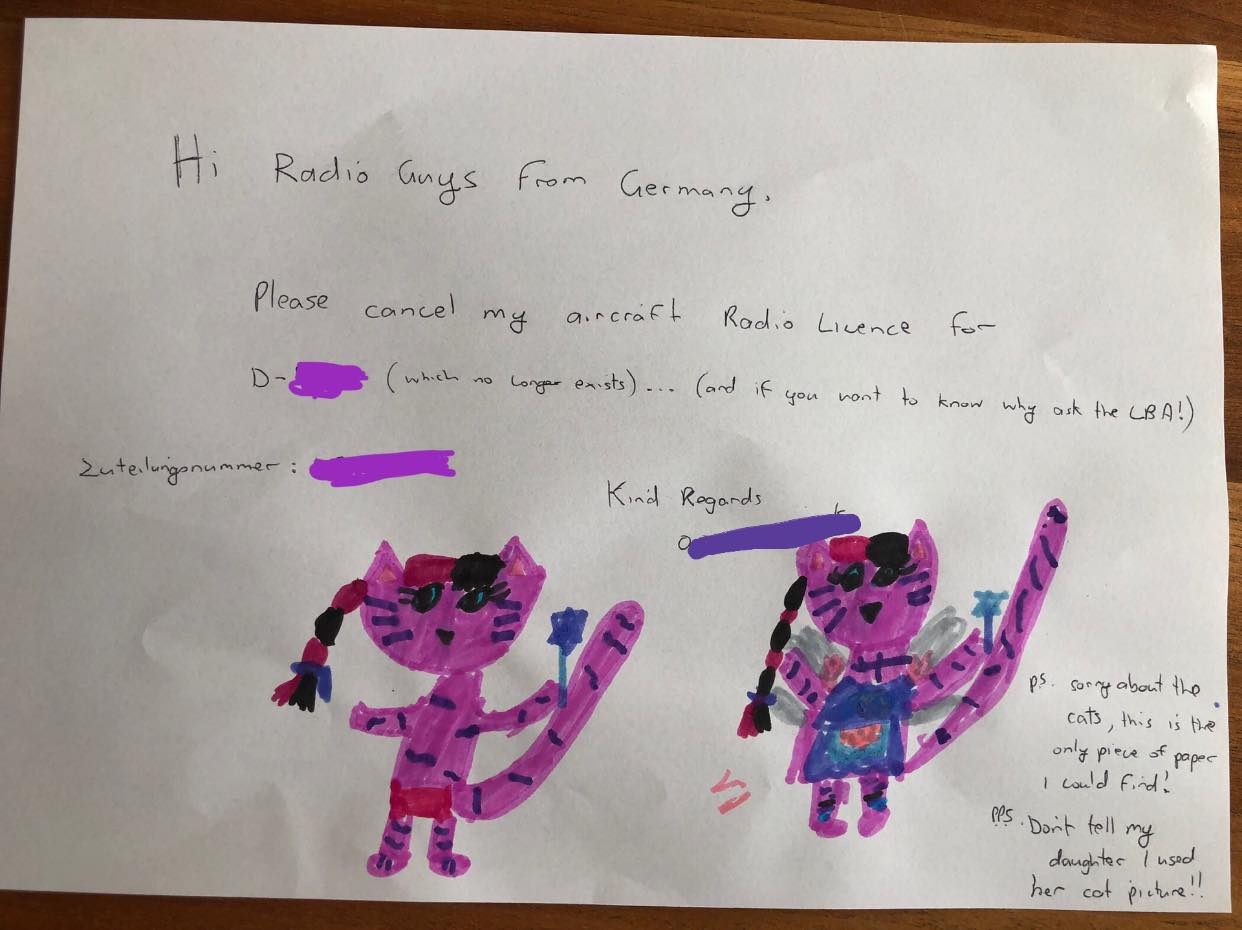 Hi Radio Guys from Germany,
Please cancel my aircraft Radio Licence for
D- (which no longer exists)... (and if you want to know why ask the LBA!)
Zuteilungsnummer:
Kind Regards
ps. sorry about the
cats, this is the
only piece of paper
I could find!
PPS. Don't tell my
daughter I used
her cat picture!!